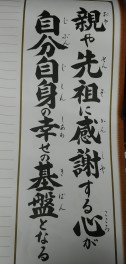 親や先祖に感謝する心が
自分自身の幸せの基盤となる